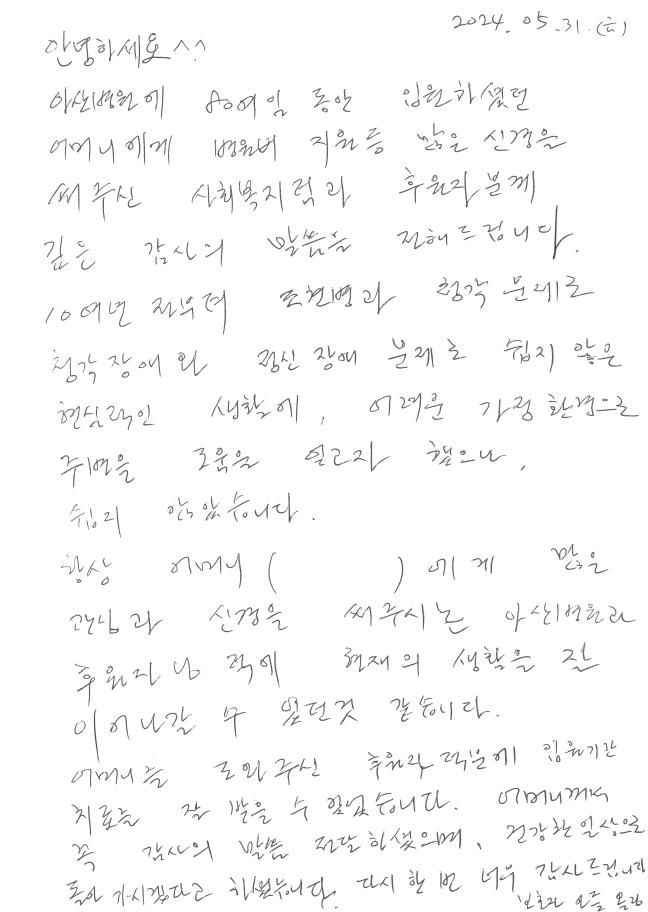 2024. 05. 31. (금)
안녕하세요 ^^
아산병원에 80여일 동안 입원하셨던
어머니에게 병원비 지원등 많은 신경을
써 주신 사회복지팀과 후원자분께
깊은 감사의 말씀을 전해드립니다.
10여년 전부터 조현병과 청각 문제로
청각 장애와 정신장애 문제로 쉽지 않은
현실적인 생활에, 어려운 가정환경으로
주변을 도움을 얻고자 했으나,
쉽지 않았습니다.
항상 어머니 ( ) 에게 많은
관심과 신경을 써주시는 아산병원과
후원자님 덕에 현재의 생활을 잘
이어나갈 수 있던것 같습니다.
어머니를 도와주신 후원자 덕분에 입원기간
치료를 잘 받을 수 있었습니다. 어머니께서
꼭 감사의 말씀 전달하셨으며, 건강한 일상으로
돌아가시겠다고 하셨습니다. 다시 한 번 너무 감사드립니다
보호자 올림